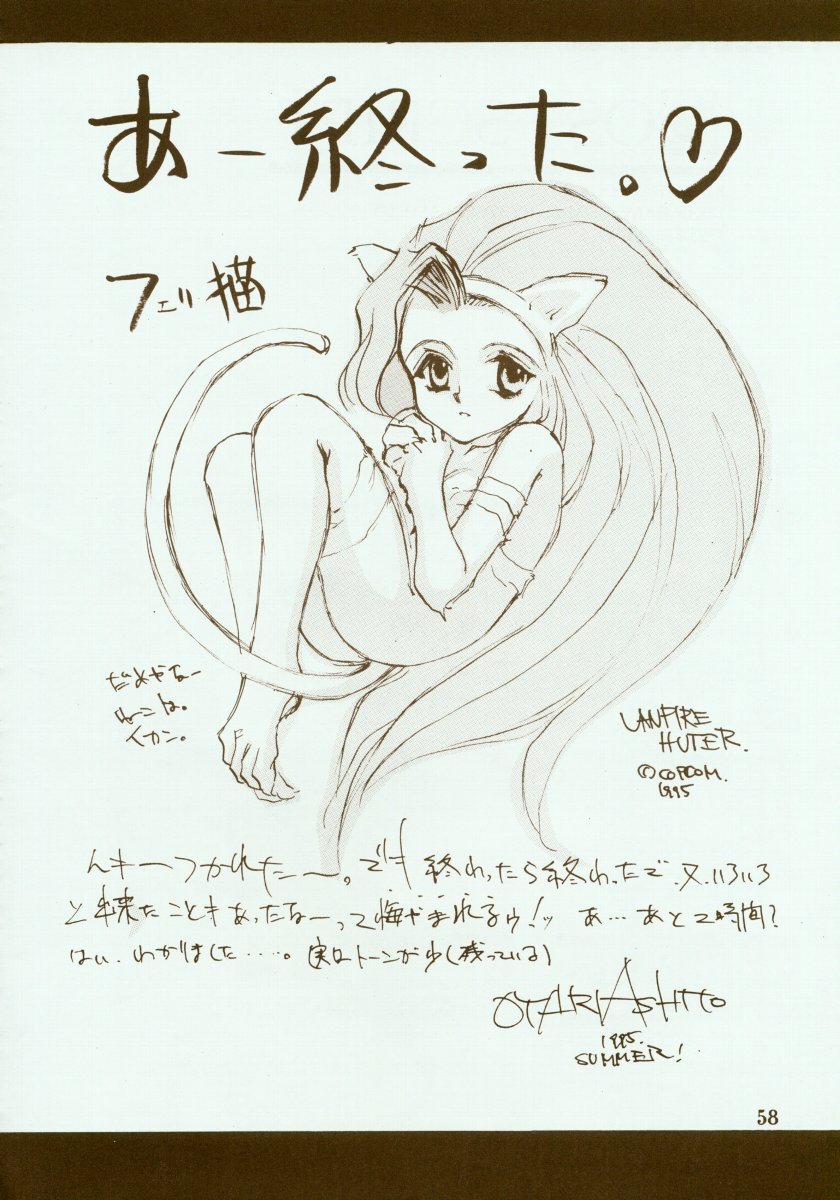 あー終った。♡
フェリ猫
だめやなー
ねこは。
イカン。
VANPIRE
HUTER.
©COPCOM.
1995
んキーつかれたー。でも 終わったら終わったで、又、いろいろ
と 出来たこともあったなーって悔やまれるゥ!ッ あ…あと2時間?
はい、わかりました…‥。実はトーンが少し(残っている)
OTARI ASHITO
1995.
SUMMER!
58